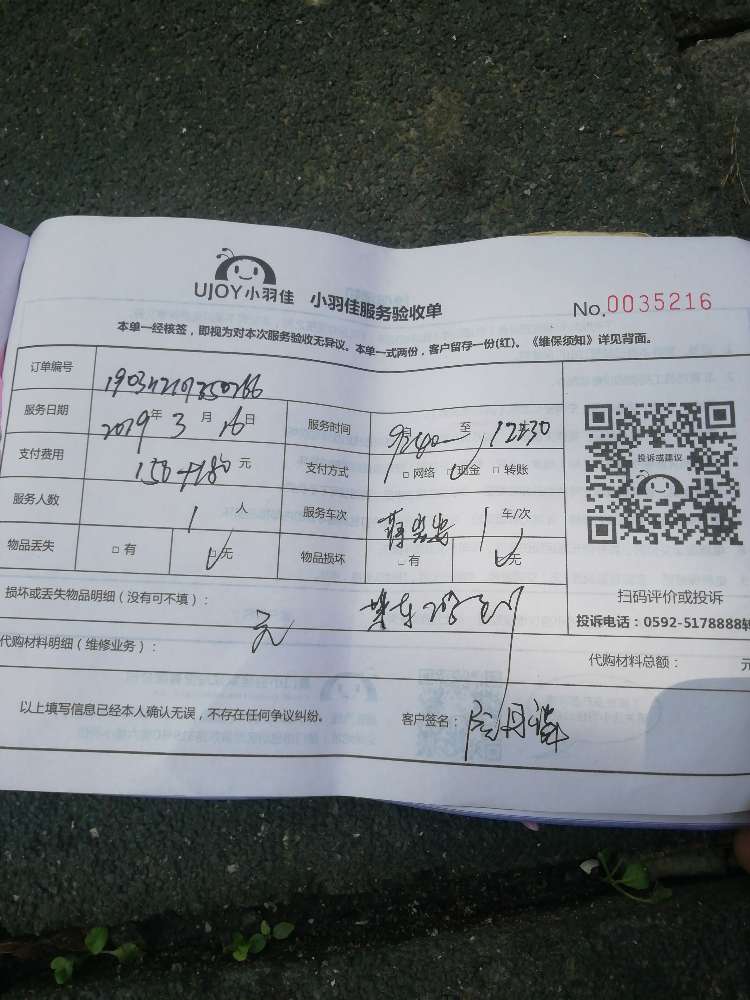 UJOY小羽佳 小羽佳服务验收单 No.0035216
本单一经核签，即视为对本次服务验收无异议。本单一式两份，客户留存一份(红)。《维保须知》详见背面。
订单编号
服务日期 2019年 3月 16日 服务时间 至 12:30
支付费用 150+180元 支付方式 □网络 □现金 □转账
服务人数 1人 服务车次 1车/次
物品丢失 □有 □无 物品损坏 □有 □无
投诉或建议
扫码评价或投诉
投诉电话：0592-5178888转
损坏或丢失物品明细（没有可不填）： 无
代购材料明细（维修业务）： 代购材料总额： 元
以上填写信息已经本人确认无误，不存在任何争议纠纷。 客户签名：